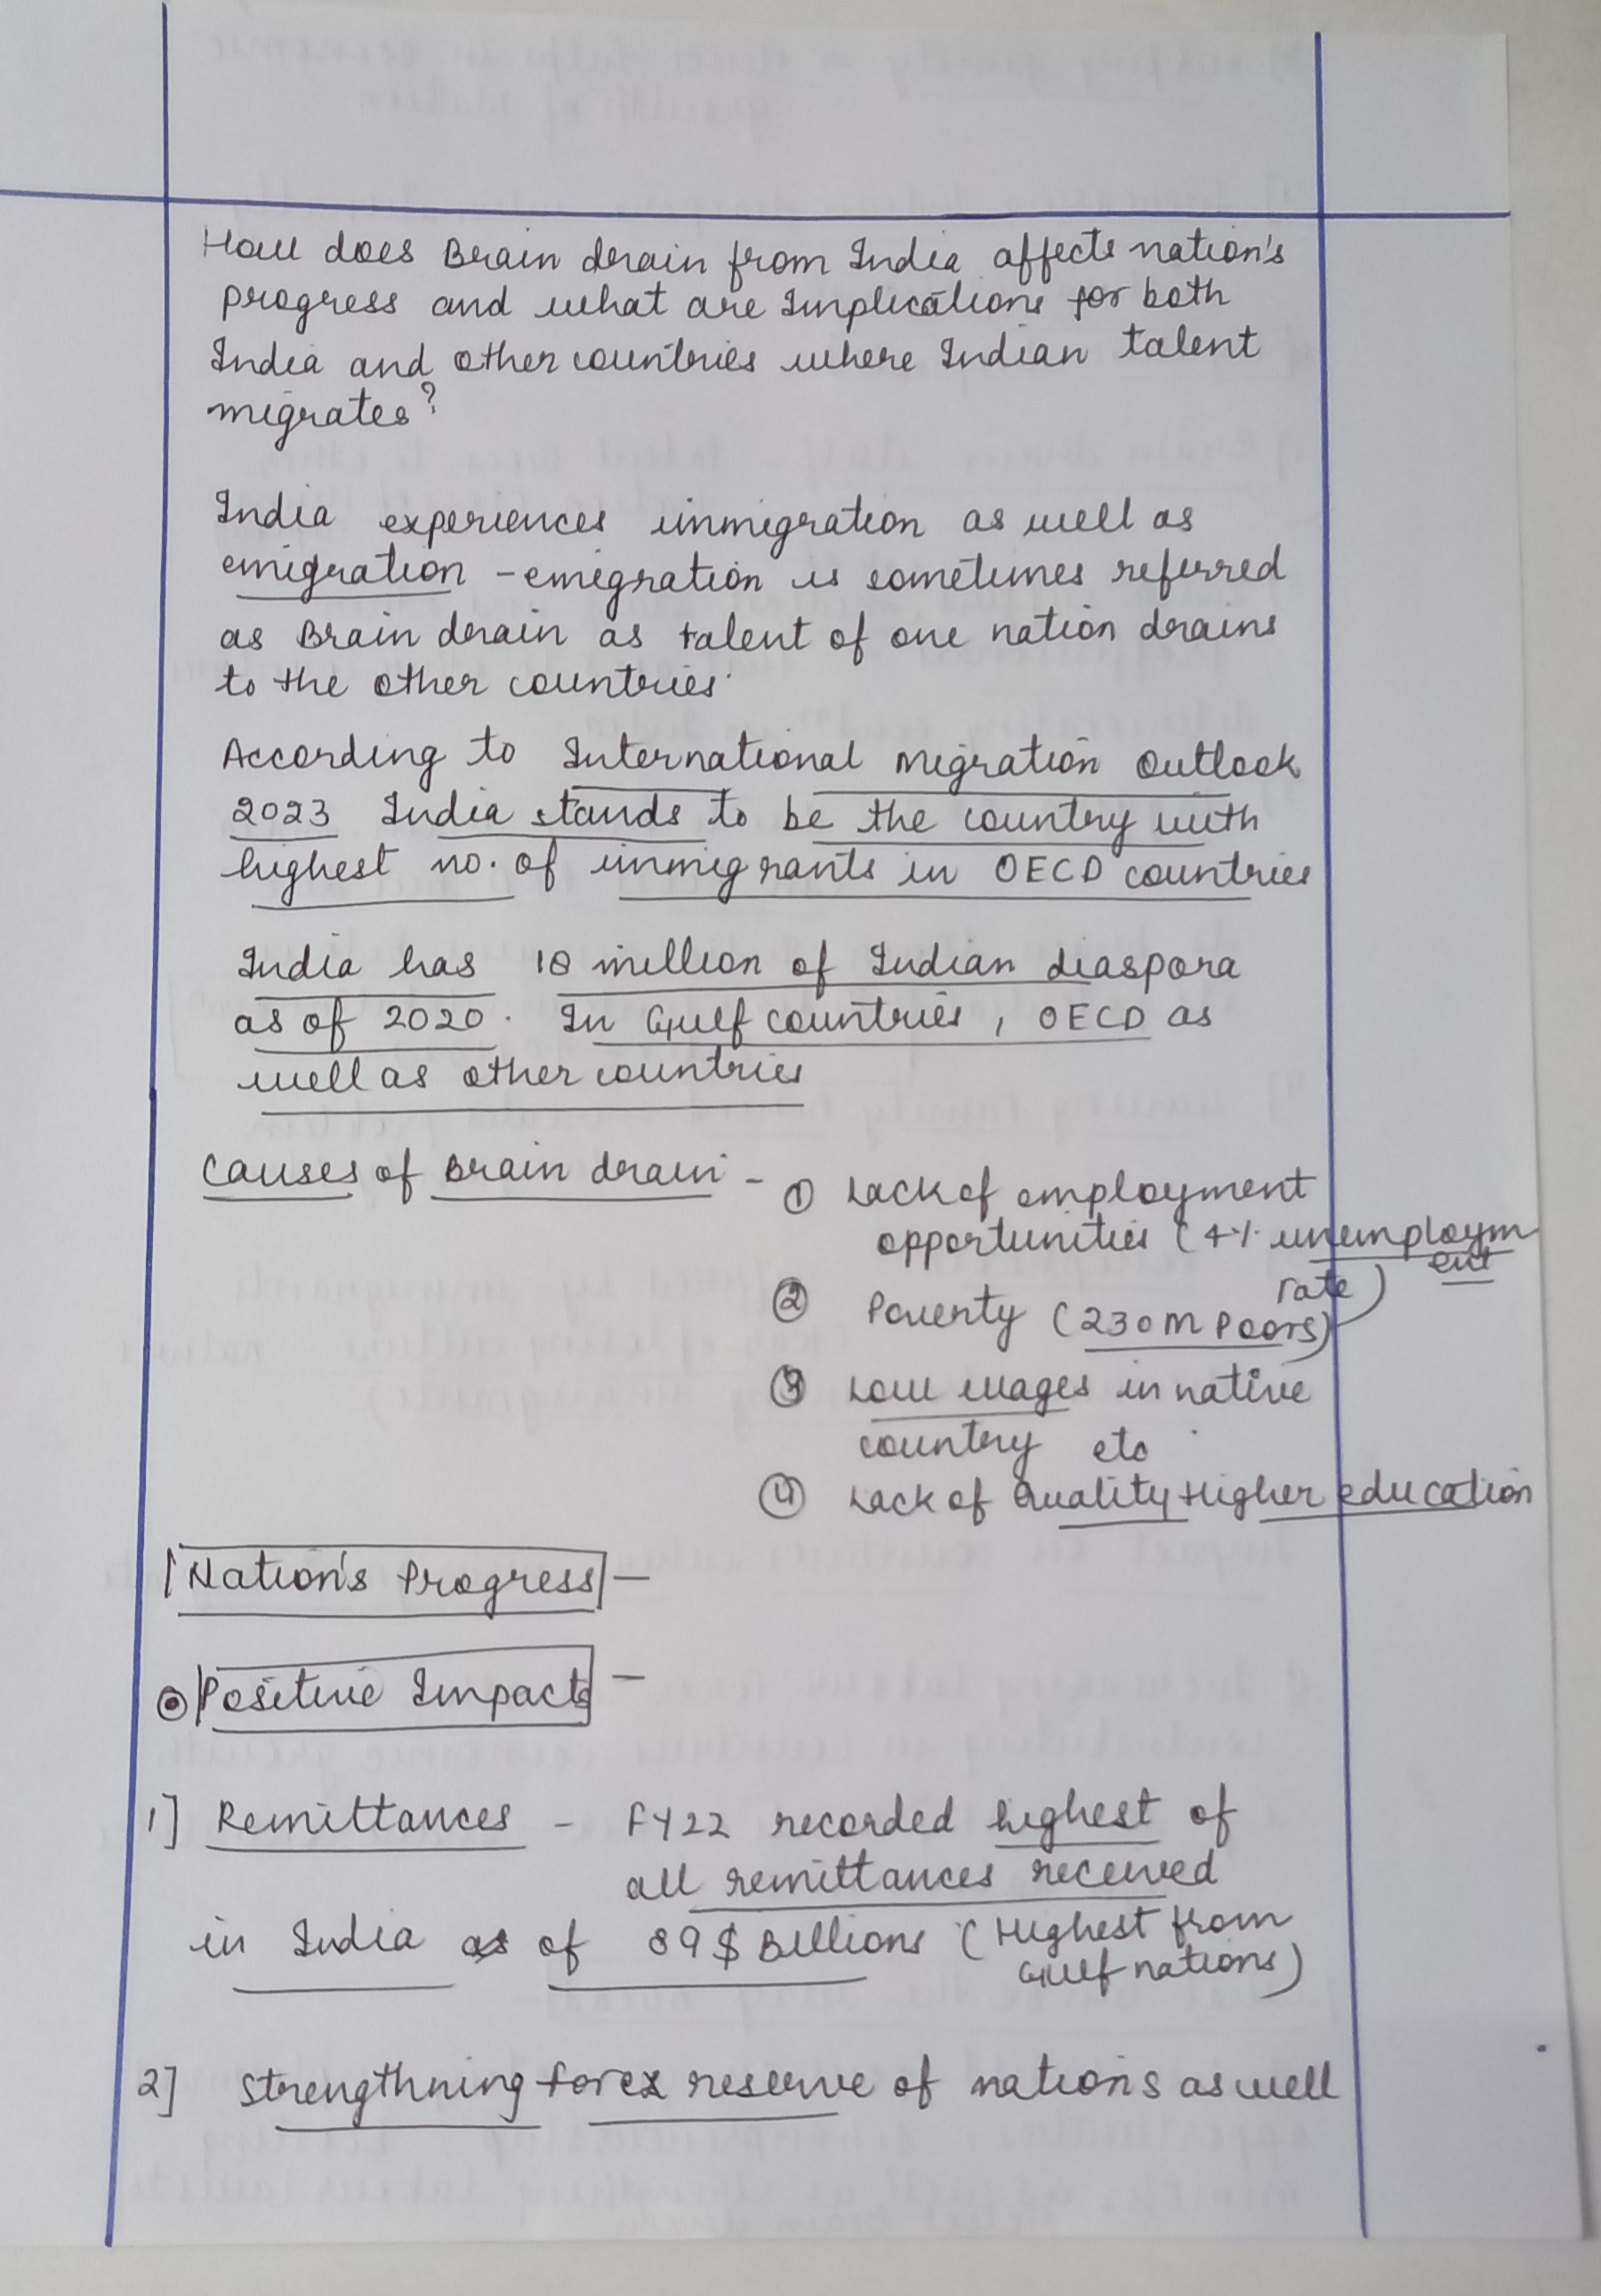 How does Brain drain from India affects nation's
progress and what are Implications for both
India and other countries where Indian talent
migrates?
India experiences immigration as well as
emigration - emigration is sometimes referred
as Brain drain as talent of one nation drains
to the other countries.
According to International Migration Outlook
2023 India stands to be the country with
highest no. of immigrants in OECD countries
India has 18 million of Indian diaspora
as of 2020. In Gulf countries, OECD as
well as other countries
Causes of Brain drain - ① Lack of employment
opportunities (4% unemploym
ent
rate)
② Poverty (230M Poors)
③ Low wages in native
country etc.
④ Lack of Quality Higher education
Nation's Progress -
Positive Impacts -
1] Remittances - FY22 recorded highest of
all remittances received
in India as of 89$ Billions (Highest from
Gulf nations)
2] Strengthning forex reserve of nations as well